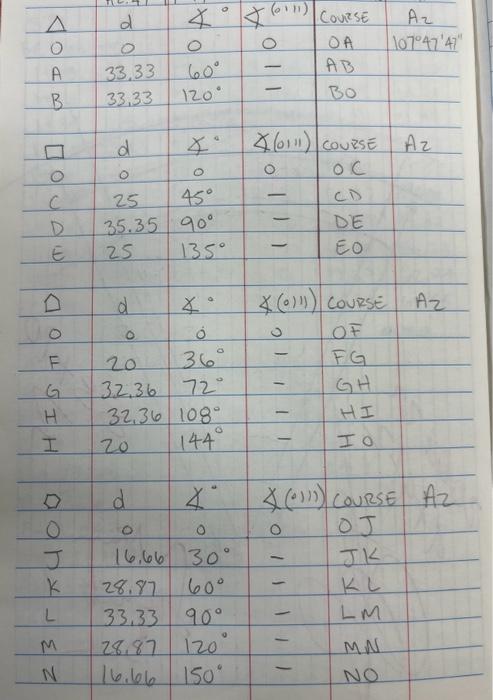 △ d ∡° ∡(0111) COURSE Az
O O O O OA 107°47'47"
A 33.33 60° — AB
B 33.33 120° — BO
□ d ∡° ∡(0111) COURSE Az
O O O O OC
C 25 45° — CD
D 35.35 90° — DE
E 25 135° — EO
⬠ d ∡° ∡(0111) COURSE Az
O O O O OF
F 20 36° — FG
G 32.36 72° — GH
H 32.36 108° — HI
I 20 144° — IO
⬡ d ∡° ∡(0111) COURSE Az
O O O O OJ
J 16.66 30° — JK
K 28.87 60° — KL
L 33.33 90° — LM
M 28.87 120° — MN
N 16.66 150° — NO